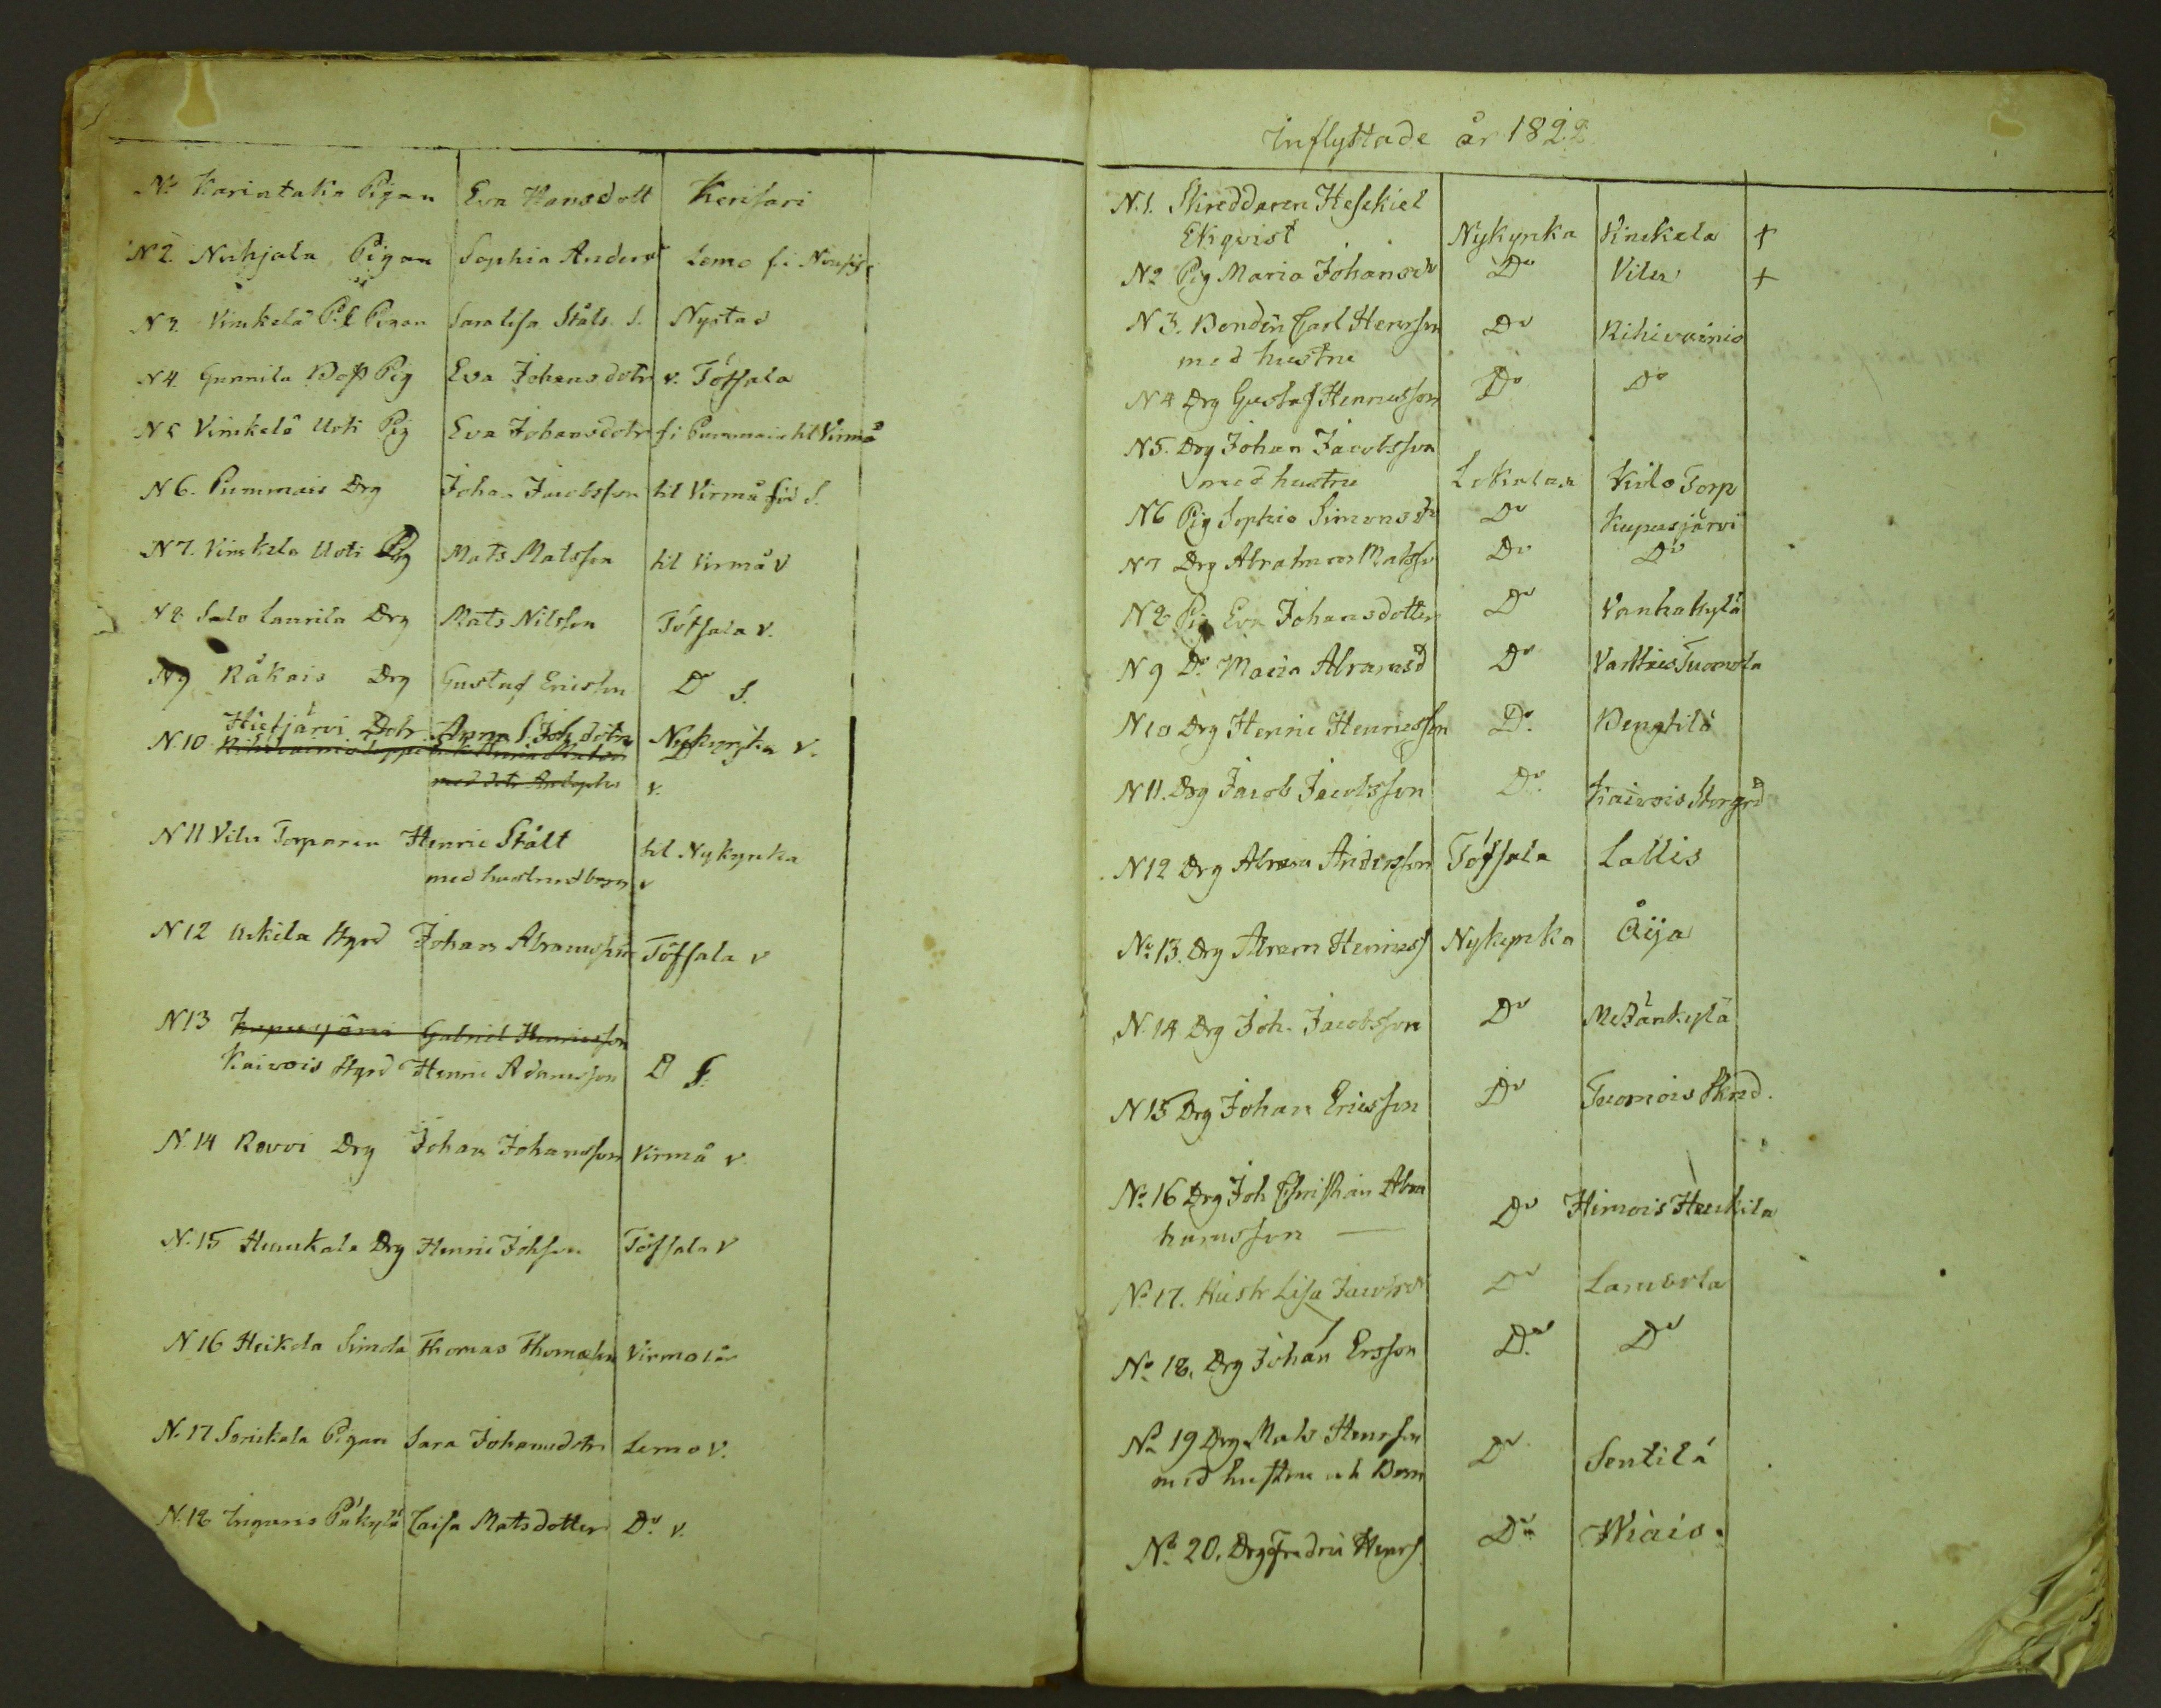 No Karintaka Pigan Eva Hansdott Kerisari
N 2. Nuhjala Pigan Sophia Andersd Lemo fr Nousis
N 3. Vinkelä Pigan Saralisa Ståls S. Nystad
N 4. Gunnila Boss Pig Eva Johansdotr v. Töfsala
N 5 Vinkelä Uoti Pig Eva Johansdotr fr Pummais til Virmå
N 6. Pummais Drg Johan Jacobsson til Virmå S.
N 7. Vinkela Uoti Drg Mats Matsson til Virmå v
N 8. Salo Laurila Drg Mats Nilsson Töfsala v.
N 9 Råkais Drg Gustaf Ericsson D S.
Hietjärvi Dotr. Anna S. Joh dotr Nykyrka v.
N. 10
v.
N 11 Vilu Torparen Henric Stålt til Nykyrka
med hustru barn v
N 12 Uckila Hgrd Johan Abramsson Töfsala v
N 13 Kupusjärvi Gabriel Henricsson
Kaivois Hgrd Henric Adamsson D S.
N. 14 Rovoi Drg Johan Johansson Virmå v.
N. 15 Hunkala Drg Henric Johsson Töfsala v
N 16 Heikola Simola Thomas Thomasson Virmo
N. 17 Sorickala Pigan Sara Johansdotr Lemo v.
N. 18 Pukylä Caisa Matsdotter Do. v.
Inflyttade år 1822
N. 1. Skreddaren Hesekiel
Ekqvist Nykyrka Vinkela +
N 2 Pig Maria Johansdr Do Vilu +
N 3. Bonden Carl Henrsson Do Rihivainio
med hustru
N 4 Drg Gustaf Henricsson Do Do
N 5. Drg Johan Jacobsson
med hustru Lokalax Kulo Torp
N 6 Pig Sophia Simonsdr Do Kupusjärvi
N 7 Drg Abraham Matsso Do Do
N 8 Pig Eva Johansdotter Do Vanhakylä
N 9 Do Maria Abramsd Do Varttais Tuomola
N 10 Drg Henric Henricsson Do. Bengtilä
N 11. Drg Jacob Jacobsson Do. Kaivois Storgrd
N 12 Drg Abram Andersson Töfsala Lallis
No 13. Drg Abram Henricss Nykyrka Äijä
N. 14 Drg Joh. Jacobsson Do Metzänkylä
N 15 Drg Johan Ericsson Do Tuomois
No. 16 Drg Joh Christian Abra
hamsson — Do Himois Heikila
No. 17. Hustr Lisa Jacobsdr Do Lamsola
No. 18. Drg Johan Ersson Do. Do
No 19 Drg Mats Henrsson
med hustru och Barn Do Sentilä
No. 20. Drg Fredric Henrs Do Wiais.